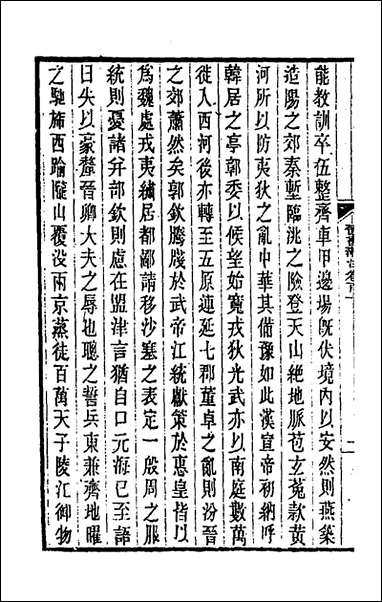 能教訓卒伍整齊車甲邊場既伏境內以安然則燕築
造陽之郊秦塹臨洮之險登天山絕地脈苞玄菟款黃
河所以防夷狄之亂中華其備豫如此漢宣帝初納呼
韓居之亭郭委以候望始寬戎狄光武亦以南庭數萬
徙入西河後亦轉至五原連延七郡董卓之亂則汾晉
之郊蕭然矣郭欽騰牋於武帝江統獻策於惠皇皆以
爲魏處戎夷繡居都鄙請移沙塞之表定一殷周之服
統則憂諸并部欽則慮在盟津言猶自口元海已至語
曰失以豪釐晉卿大夫之辱也聰之誓兵東兼齊地曜
之馳旆西踰隴山覆没兩京蒸徒百萬天子陵江御物